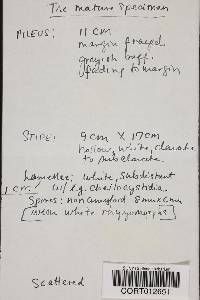 The mature specimen
PILEUS: 11 cm
margin
grayish buff
fading to margin
STIPE: 9 cm X 17cm
hollow, white, clavate
to subclavate.
Lamellae: white, subdistant
1 cm. w/ lg. cheilocystidia.
Spores: non amyloid
white rhizomorphs
Scattered
CORT012651